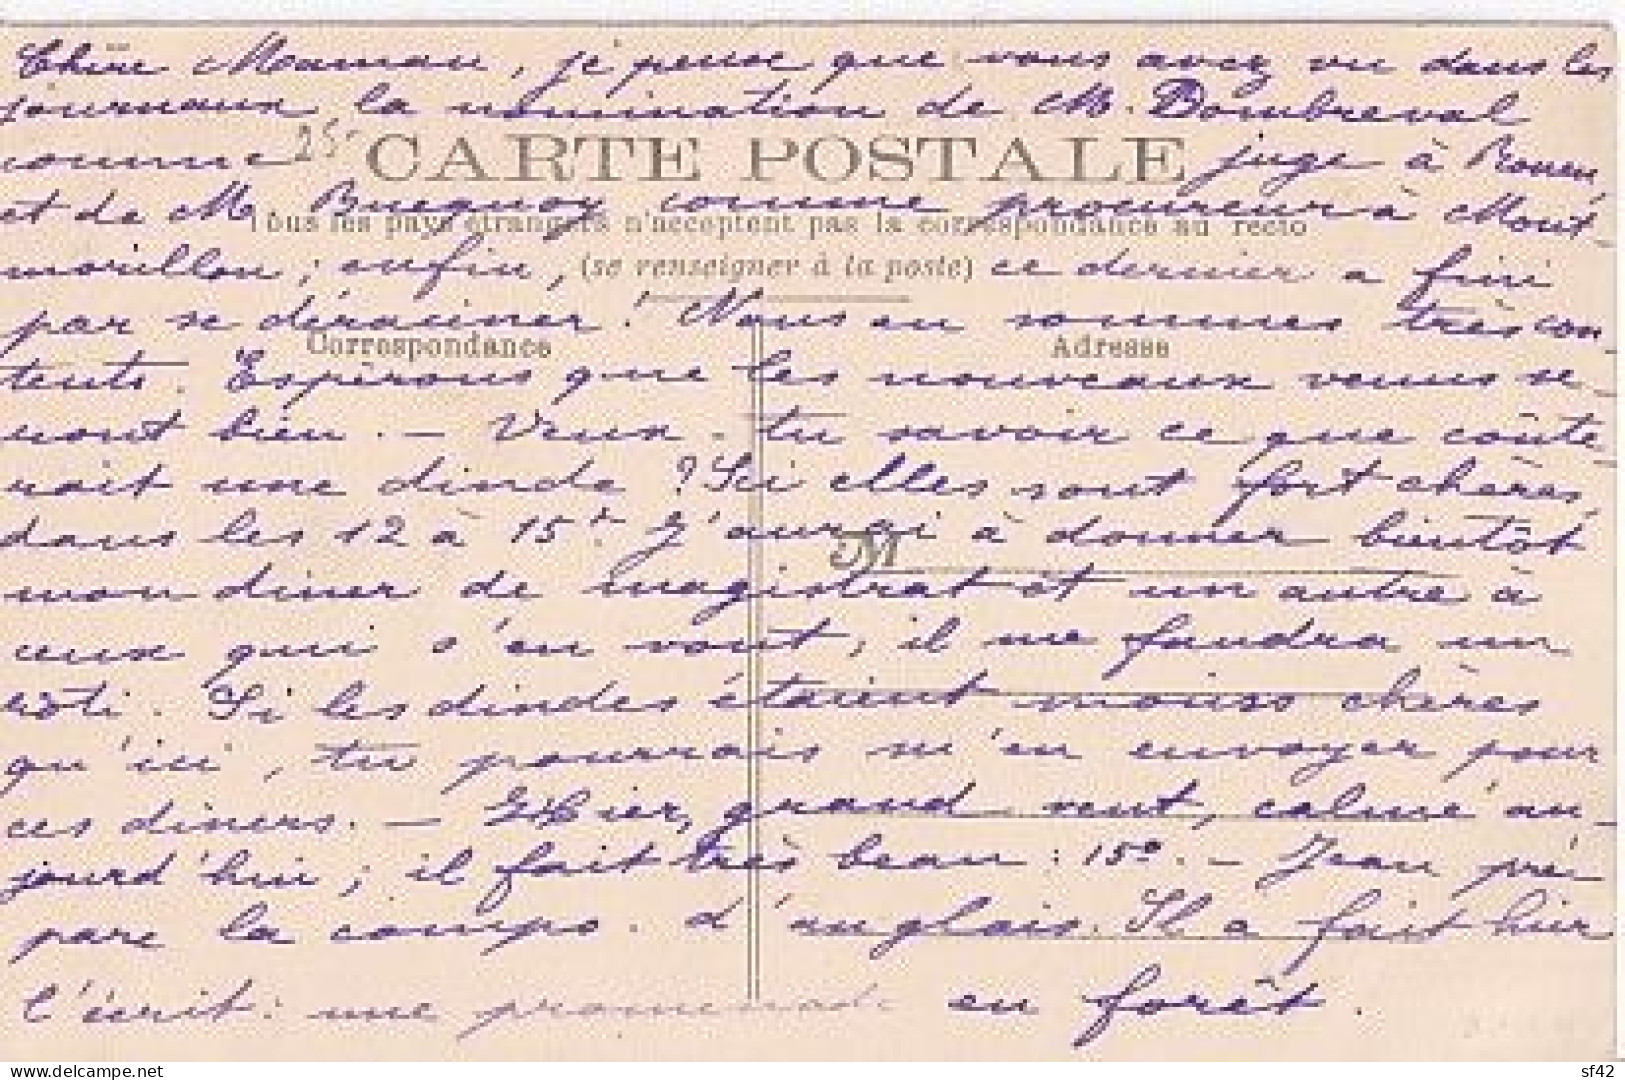 Chère Maman, je pense que vous avez vu dans les
journaux la nomination de M. Dombreval
comme 25- juge à Rouen,
CARTE POSTALE
et de M. Bucquoy comme procureur à Mont-
Tous les pays étrangers n'acceptent pas la correspondance au recto
morillon ; enfin, (se renseigner à la poste) ce dernier a fini
par se déraciner ! Nous en sommes très con-
Correspondance Adresse
tents. Espérons que les nouveaux venus se-
ront bien. - Veux-tu savoir ce que coûte-
rait une dinde ? Ici elles sont fort chères,
dans les 12 à 15 fr J'aurai à donner bientôt
M
mon diner de magistrat et un autre à
ceux qui s'en vont ; il me faudra un
rôti. Si les dindes étaient moins chères
qu'ici, tu pourrais m'en envoyer pour
ces diners. - Hier, grand vent, calme au-
jourd'hui ; il fait très beau : 15°. - Jean pré-
pare la compo. d'anglais. Il a fait hier
l'écrit : une promenade en forêt.
delcampe.net
sf42